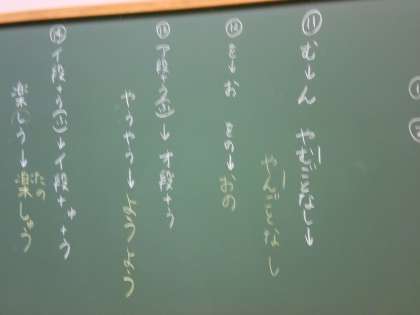 ⑪ む→ん やむごとなし→
やんごとなし
⑫ を→お をの→おの
⑬ ア段+う(ふ)→オ段+う
やうやう→ようよう
⑭ イ段+う(ふ)→イ段+ゅ+う
たの
楽しう→楽しゅう